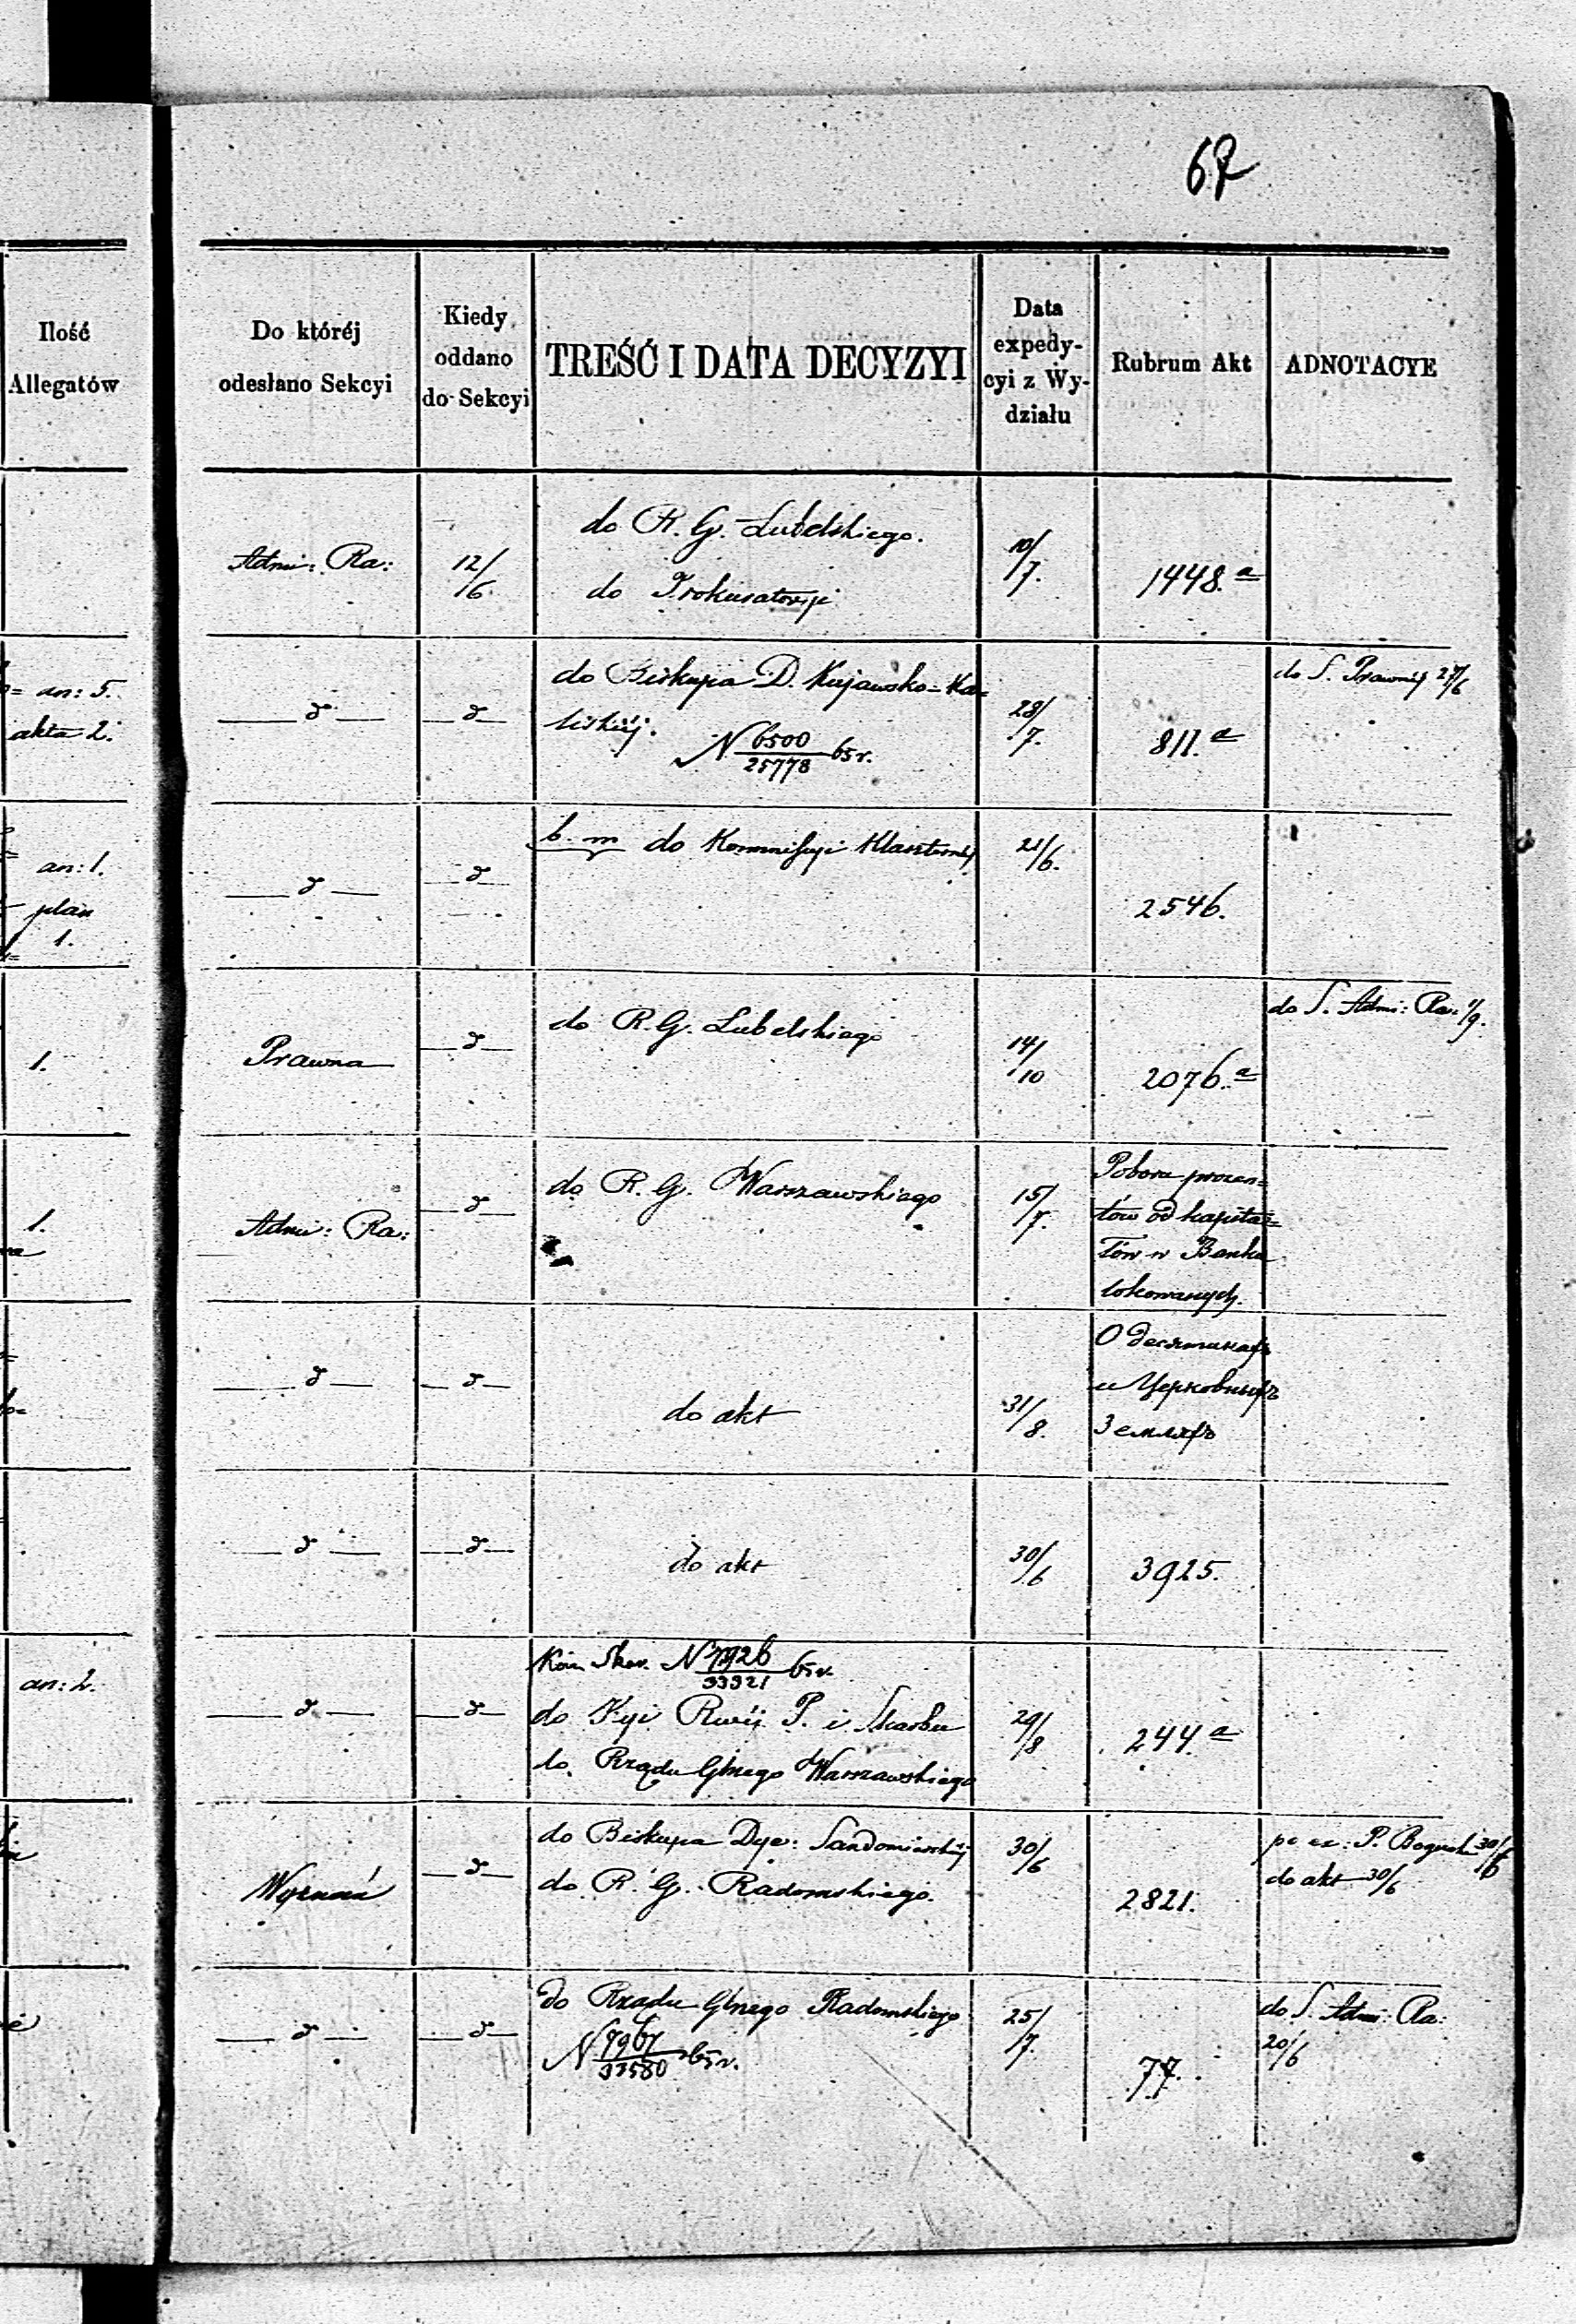 67
Ilość
Allegatów
Do któréj
odesłano Sekcyi
Kiedy
oddano
do Sekcyi
TREŚĆ I DATA DECYZYI
Data
expedy-
cyi z Wy-
działu
Rubrum Akt
ADNOTACYE
Admi: Ra:
12/6
do R. G. Lubelskiego.
do Prokuratoryi
10/7.
1448.a
an: 5.
akta 2.
d
d
do Biskupa D. Kujawsko=Ka=
liskiéj.
N 6500/25778 65 r.
28/7.
811.a
do S. Prawnéj 27/6
an: 1.
plan
1.
d
d
b. m do Kommissyi Klasztornéj
21/6.
2546.
1.
Prawna
d
do R. G. Lubelskiego
14/10
2076.a
do S. Admi: Ra: 1/9.
1.
Admi: Ra:
d
do R. G. Warszawskiego
15/7.
Poboru procen=
tów od kapita=
łów w Banku
lokowanych.
d
d
do akt
31/8.
О десятинахъ
и Церковныхъ
Земляхъ
d
d
do akt
30/6
3925.
an: 2.
d
d
Kom Skar. N 7926/33321 65 r.
do Kyi Rzéj P. i Skarbu
do Rządu Gbnego Warszawskiego
29/8
244.a
Wyznań
d
do Biskupa Dye: Sandomierskiéj
do R. G. Radomskiego.
30/6
2821.
P. 30/6
do akt 30/6
d
d
do Rządu Gbnego Radomskiego
33580 65 r.
25/7.
77.
do S. Admi: Ra:
20/6